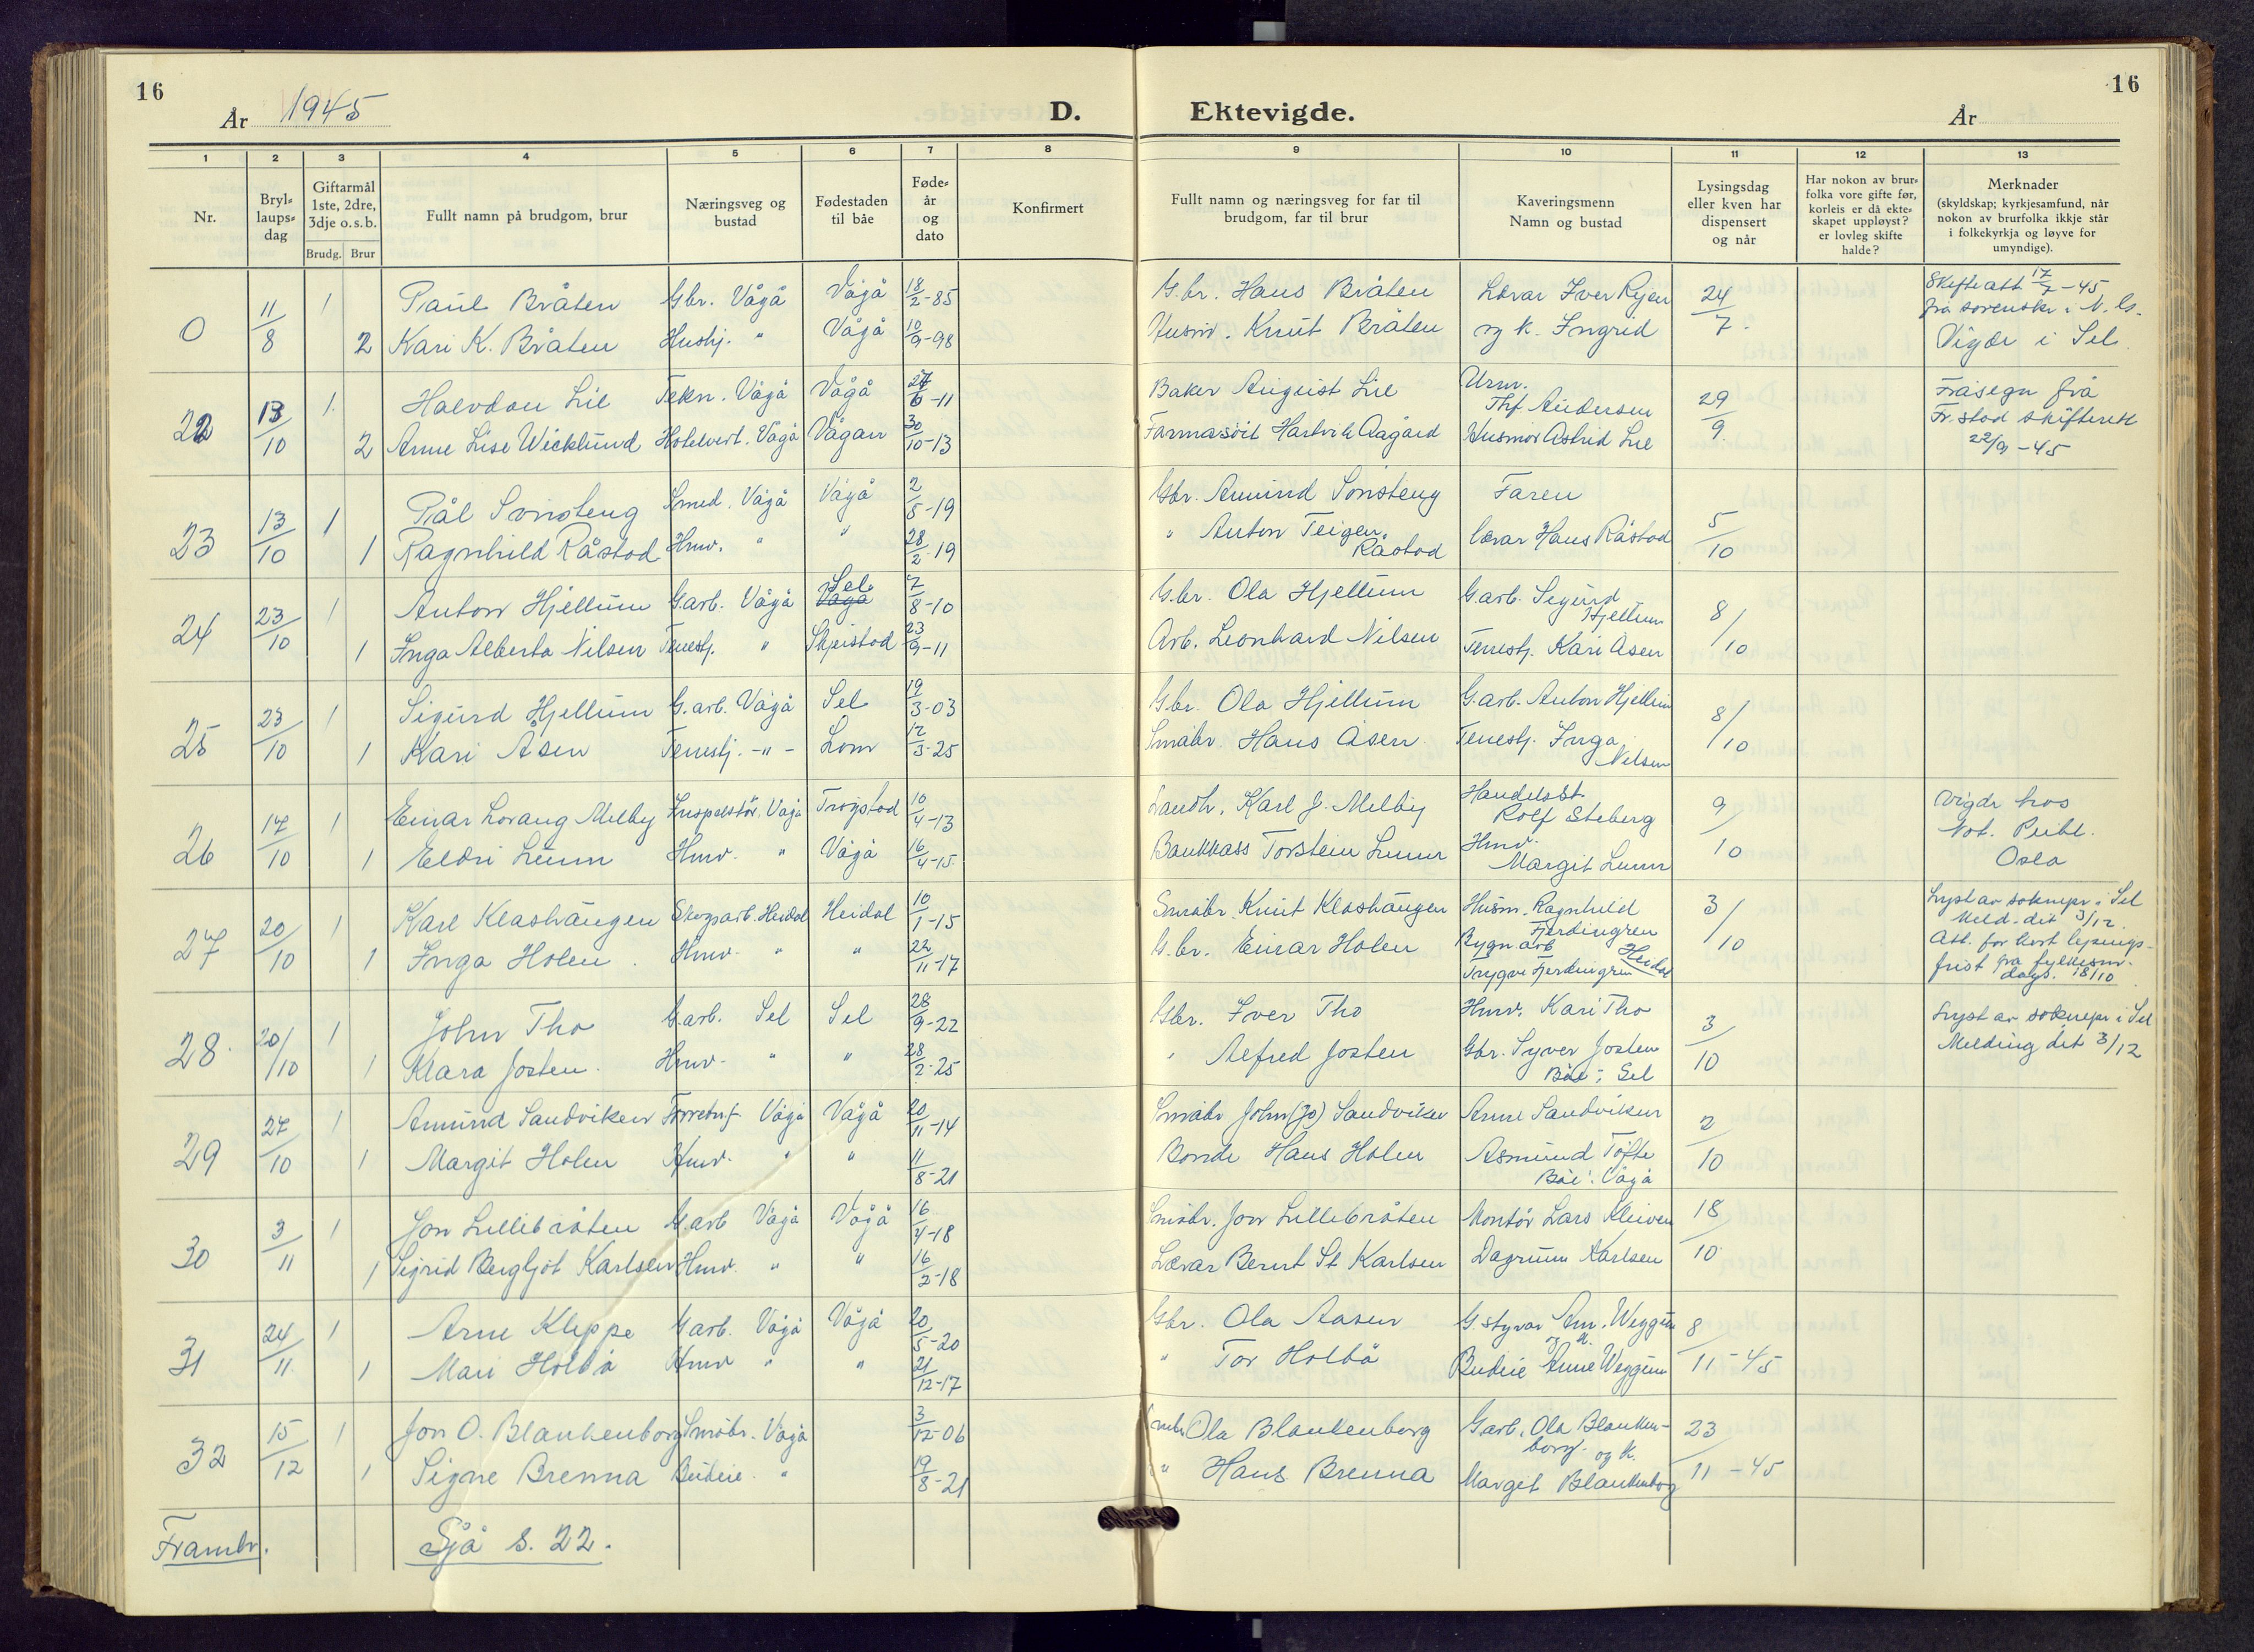 16
År 1945
D.
1 2 3 4 5 6 7 8
Nr.
Bryl-
laups-
dag
Giftarmål
1ste, 2dre,
3dje o.s.b.
Brudg. Brur
Fullt namn på brudgom, brur
Næringsveg og
bustad
Fødestaden
til båe
Føde-
år
og
dato
Konfirmert
0 11/8 1 Paul Bråten Gbr. Vågå Vågå 18/2-85
2 Kari K. Bråten Hushj. " Vågå 10/9-98
22 13/10 1 Halvdan Lie Tekn. Vågå Vågå 27/6-11
2 Anne Lise Wicklund Hotelvert. Vågå Vågan 30/10-13
23 13/10 1 Pål Sønsteng Smed. Vågå Vågå 2/5-19
1 Ragnhild Råstad Hmv. " " 28/2-19
24 23/10 1 Anton Hjellum G.arb. Vågå Sel Vågå 7/8-10
1 Inga Alberta Nilsen Tenestj. " Skjeistad 23/9-11
25 23/10 1 Sigurd Hjellum G.arb. Vågå Sel 19/3-03
1 Kari Åsen Tenestj. -"- Lom 12/3-25
26 17/10 1 Einar Lorang Melby Inspektør, Vågå Trøgstad 10/4-13
1 Eldri Lunn Hmv. " Vågå 16/4-15
27 20/10 1 Karl Klashaugen Skogsarb. Heidal Heidal 10/1-15
1 Inga Holen Hmv. " " 22/11-17
28 20/10 1 John Tho G.arb. Sel Sel 28/9-22
1 Klara Josten Hmv. " " 28/2-25
29 27/10 1 Amund Sandviken Forretn.f. Vågå Vågå 20/11-14
1 Margit Holen Hmv. " " 11/8-21
30 3/11 1 Jon Lillebråten G.arb Vågå Vågå 16/4-18
1 Sigrid Bergljot Karlsen Hmv. " " 16/2-18
31 24/11 1 Arne Kleppe G.arb. Vågå Vågå 20/5-20
1 Mari Holbø Hmv " " 21/12-17
32 15/12 1 Jon O. Blankenborg Småbr. Vågå 3/12-06
1 Signe Brenna Budeie. " 19/8-21
Frambr. Sjå s. 22.
16
Ektevigde.
År
9 10 11 12 13
Fullt namn og næringsveg for far til
brudgom, far til brur
Kaveringsmenn
Namn og bustad
Lysingsdag
eller kven har
dispensert
og når
Har nokon av brur-
folka vore gifte før,
korleis er då ekte-
skapet uppløyst?
er lovleg skifte
halde?
Merknader
(skyldskap; kyrkjesamfund, når
nokon av brurfolka ikkje står
i folkekyrkja og løyve for
umyndige).
G.br. Hans Bråten Lærar Iver Rejen 24/7. Skifteatt 17/7-45
frå sorenskr. i N. G.
Husm. Knut Bråten og k. Ingrid Vigde i Sel
Baker August Lie Urm.
Thf Andersen 29/9 Fråsegn frå
Fr.stad skifterett
Farmasøit Hartvik Aagård Husmor Astrid Lie 22/9-45
Gbr. Amund Sønsteng Faren
" Anton Teigen, lærar Hans Råstad 5/10
Råstad
G.br. Ola Hjellum G.arb. Sigurd
Hjellum 8/10
Arb. Leonhard Nilsen Tenestj. Kari Åsen
G.br. Ola Hjellum G.arb. Anton Hjellum 8/10
Småbr. Hans Åsen Tenestj. Inga
Nilsen
Landh. Karl J. Melby Handelsst.
Rolf Steberg 9/10 vigde hos
Not. Publ.
Oslo
Bankkass Torstein Lunn Hmv.
Margit Lunn
Småbr. Knut Klashaugen Husm. Ragnhild
Fjerdingren 3/10 Lyst av soknepr. i Sel
Meld. dit 3/12.
G.br. Einar Holen Bygn.arb
Trygve Fjerdingren Heidal Att. for kort lysings-
frist frå fylkesm.
dags. 18/10
Gbr. Iver Tho Hmv. Kari Tho 3/10 Lyst av soknepr i Sel
" Alfred Josten Gbr. Syver Josten Melding dit 3/12
Båe i Sel
Småbr John (Jo) Sandviken Arne Sandviken 2/10
Bonde Hans Holen Asmund Tofte
Båe i Vågå
Småbr. Jon Lillebråten Montør Lars Kleiven 18/10
Lærar Bernt St Karlsen Dagrunn Karlsen
Gbr. Ola Aasen G.styrar Am. Weggum 8/11-45
og k.
" Tor Holbø Budeie Anne Weggum
Småbr Ola Blankenborg G.arb. Ola Blanken-
borg og k. 23/11-45
" Hans Brenna Margit Blankenborg